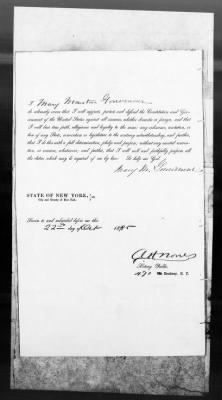 I Mary
do solemnly swear that I will support, protect and defend the Constitution and Gov-
ernment of the United States against all enemies, whether domestic or foreign, and that
I will bear true faith, allegiance and loyalty to the same, any ordinance, resolution, or
law of any State, convention or legislature to the contrary notwithstanding; and further,
that I do this with a full determination, pledge and purpose, without any mental reserva-
tion or evasion whatsoever; and further, that I will well and faithfully perform all
the duties which may be required of me by law. So help me God
Mary M.
STATE OF NEW YORK,
City and County of New York.
Sworn to and subscribed before me this
22nd day
Notary Public,
Broadway, N. Y.